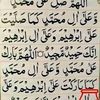 اَللّٰهُمَّ صَلِّ عَلٰى مُحَمَّدٍ
وَّعَلٰٓى اٰلِ مُحَمَّدٍ كَمَا صَلَّيْتَ
عَلٰٓى اِبْرَاهِيْمَ وَعَلٰٓى اٰلِ اِبْرَاهِيْمَ
اِنَّكَ حَمِيْدٌ مَّجِيْدٌ اَللّٰهُمَّ بَارِكْ
عَلٰى مُحَمَّدٍ وَّعَلٰٓى اٰلِ مُحَمَّدٍ
كَمَا بَارَكْتَ عَلٰٓى اِبْرَاهِيْمَ وَعَلٰٓى